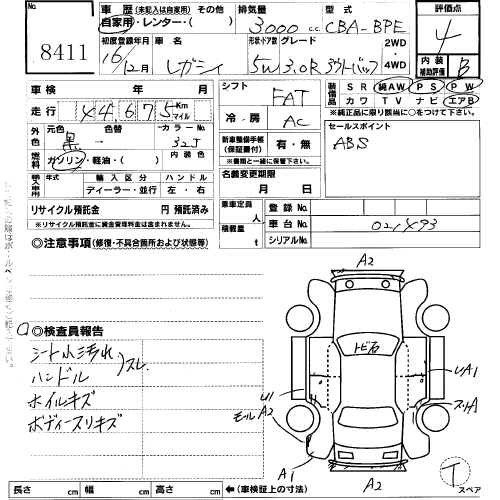 No. 8411
車歴 (未記入は自家用) その他
自家用・レンター・( )
排気量 3000 c.c.
型式 CBA-BPE
評価点 4
初度登録年月 16/12月
車名 レガシィ
形状・ドア数 グレード 5W 3.0R アウトバック
2WD・4WD
内装補助評価 B
車検 年 月
走行 44,675 Km マイル
シフト FAT
冷・房 AC
装備品 SR 純AW PS PW
カワ TV ナビ エアB
*純正品に限り該当に○をつけて下さい。
外色 元色 黒 色替 カラーNo. 32J
内装色
燃料 ガソリン・軽油・( )
新車整備手帳(保証書付) 有・無
※書類と一緒に保管下さい。
セールスポイント
ABS
輸入車用 年式 輸入区分 ハンドル
ディーラー・並行 左・右
名義変更期限
月 日
リサイクル預託金 円 預託済み
※リサイクル預託金に資金管理料金は含まれません。
乗車定員 人
積載量 t
登録No.
車台No. 021493
シリアルNo.
◎注意事項 (修復・不具合箇所および状態等)
◎検査員報告
シート小汚れ
ハンドル スレ
ホイルキズ
ボディースリキズ
A2
トビ石
UA1
U1
モールA2
スリA
A1
A2
T
スペア
長さ cm 幅 cm 高さ cm ←(車検証上の寸法)